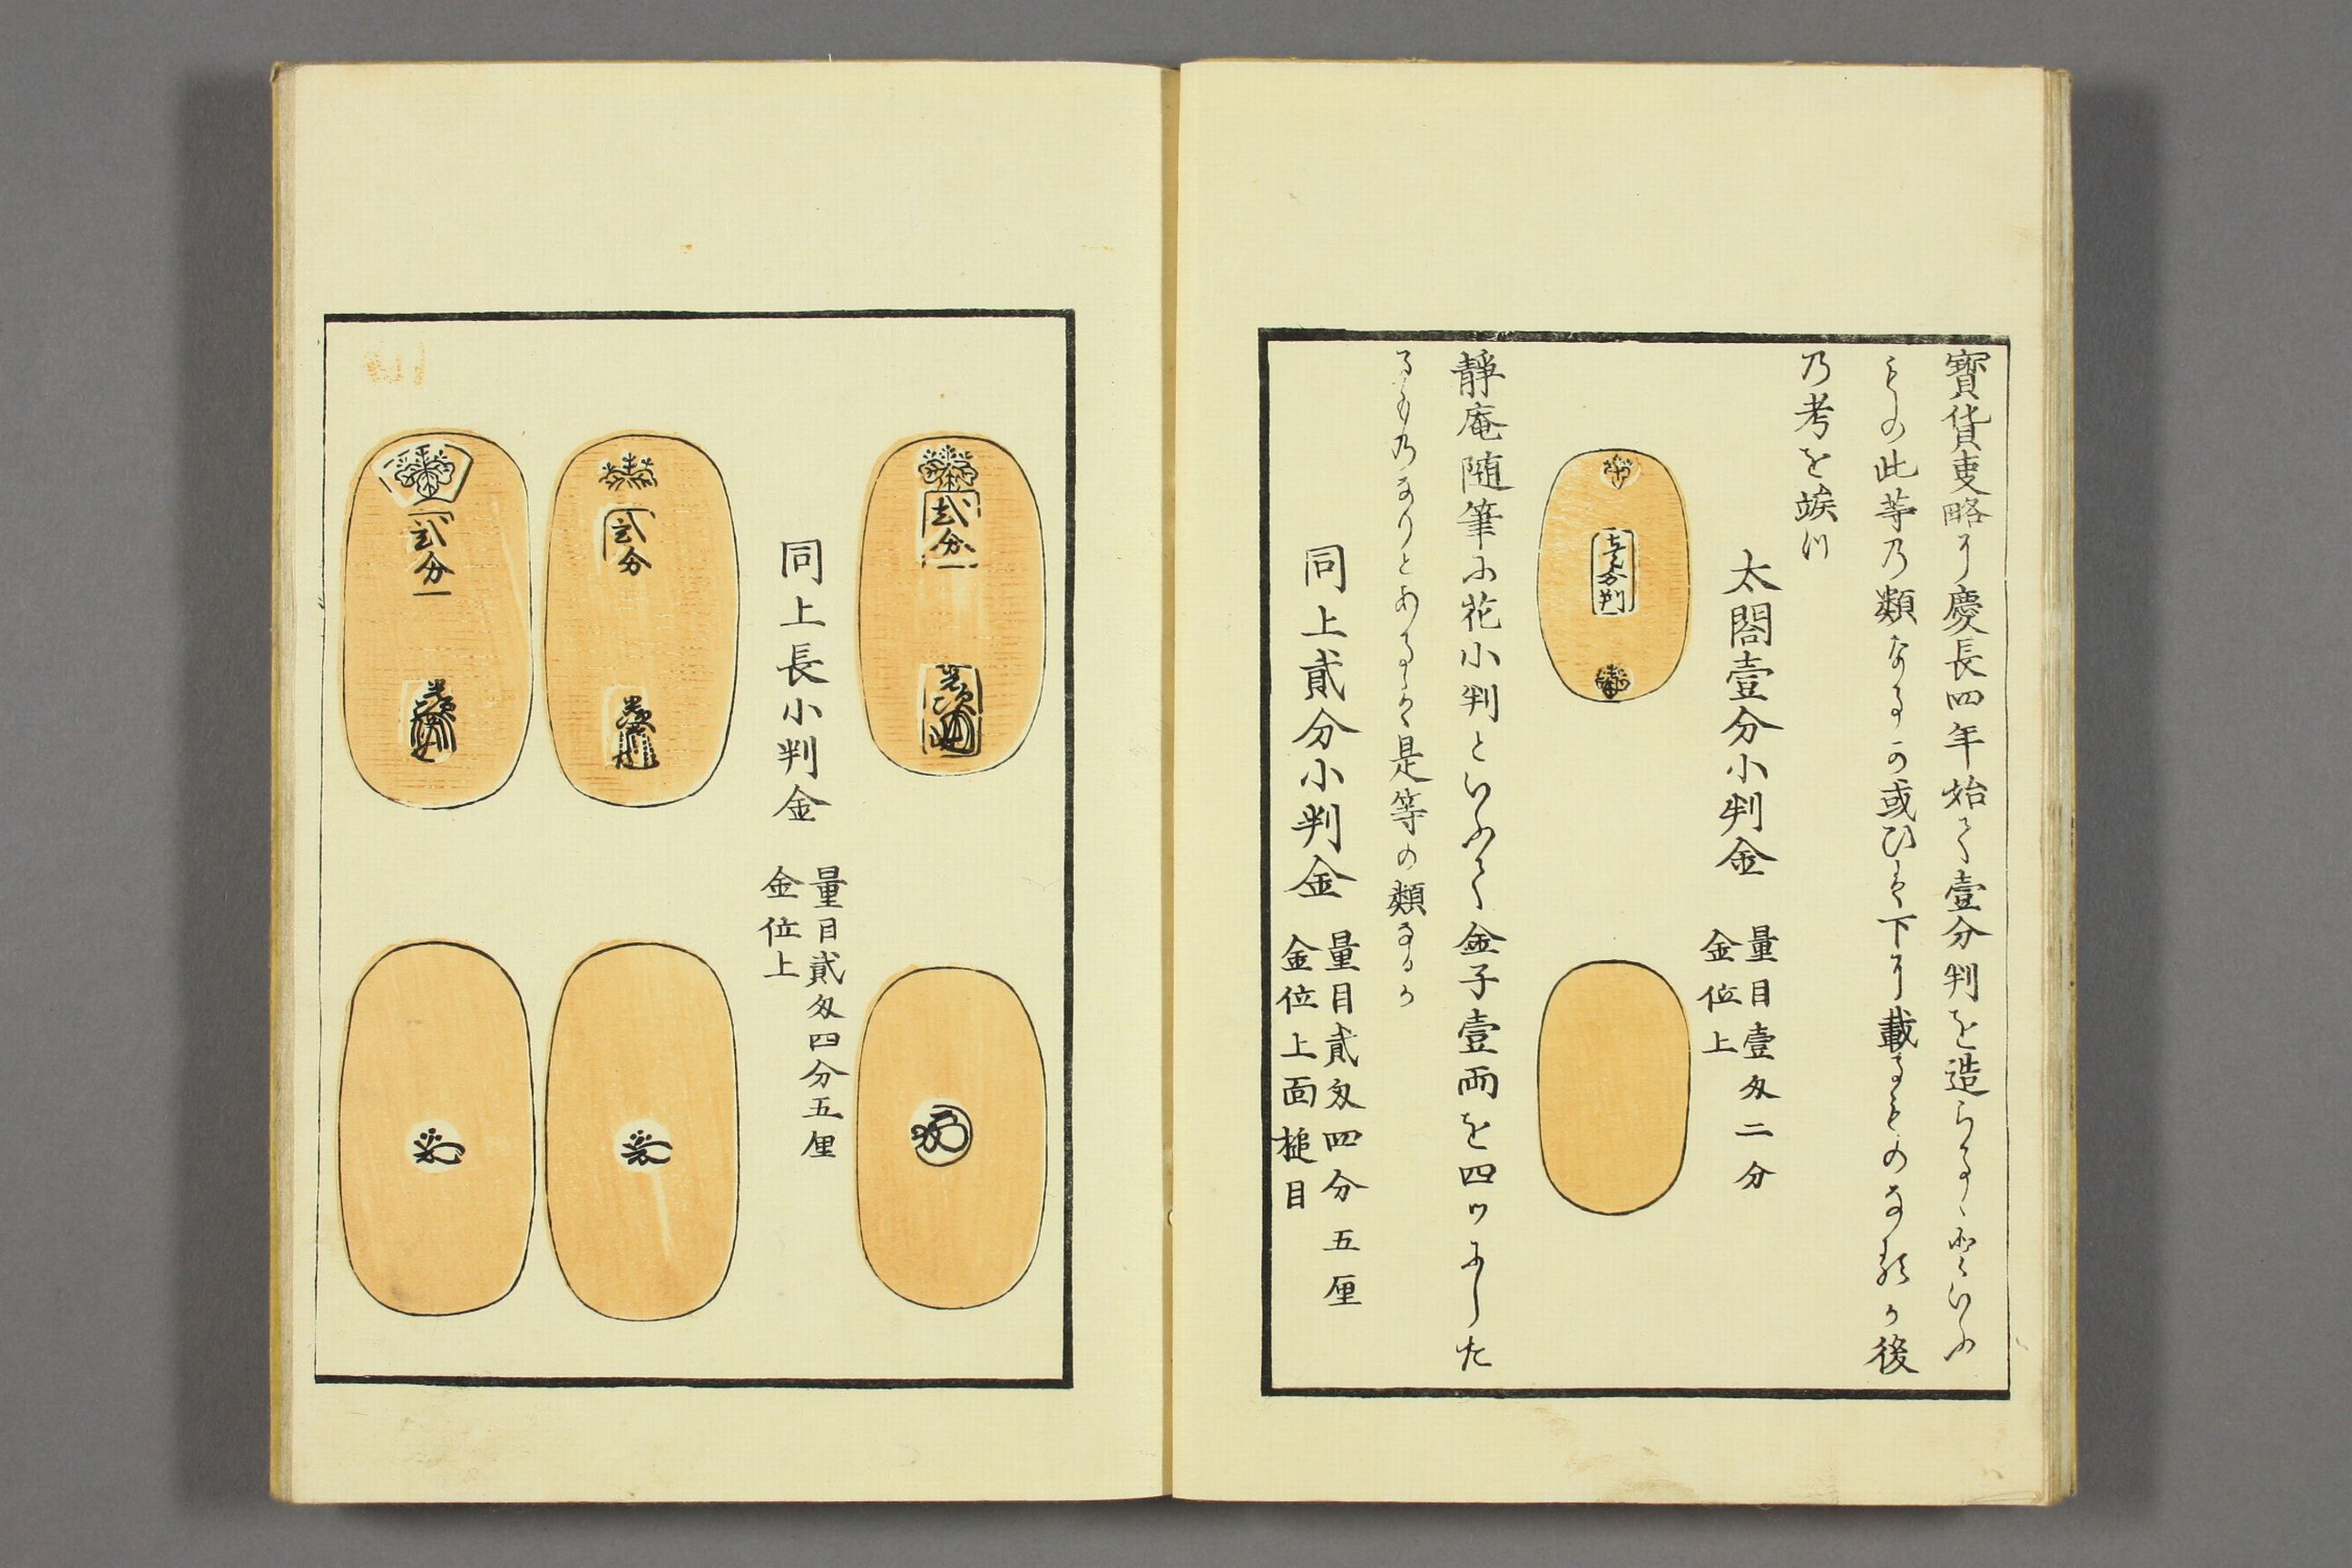 寳貨吏略ニ慶長四年始て壹分判を造らるゝ㪽といふ
もの此等乃類なるへし或ひは下に載るものゝ類か後
乃考を竢つ
太閤壹分小判金
量目壹匁二分
金位上
壹分判
靜庵随筆に花小判といふて金子壹両を四ッにした
るもの乃なりとあるは是等の類なるか
同上貳分小判金
量目貳匁四分五厘
金位上面槌目
貳分一
光次
同上長小判金
量目貳匁四分五厘
金位上
貳分
光次
貳分一
光次